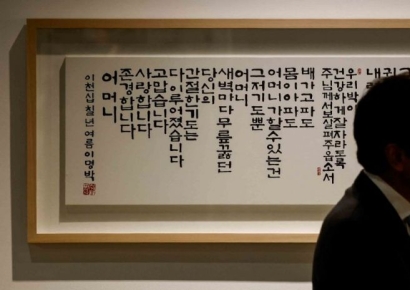 우리
건강하게잘자라도록
주님께서보살펴주옵소서
배가고파도
몸이아파도
어머니가할수있는건
그저기도뿐
어머니
새벽마다무릎꿇던
당신의
간절한기도는
다이루어졌습니다
고맙습니다
사랑합니다
존경합니다
어머니
이천십칠년 여름 이명박